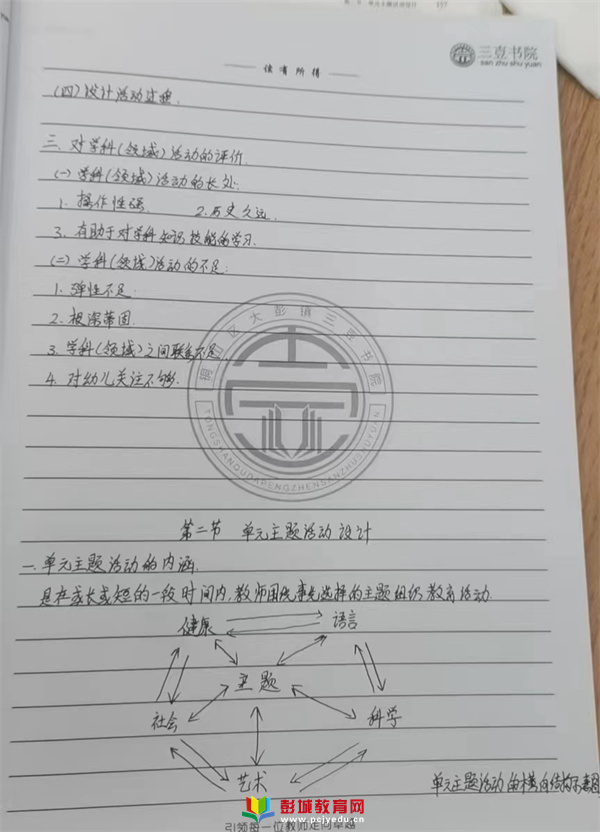 三壹书院
san zhu shu yuan
读有所得
(四)设计活动过程.
三、对学科(领域)活动的评价.
(一)学科(领域)活动的长处.
1. 操作性强. 2. 历史久远.
3. 有助于对学科知识技能的学习.
(二)学科(领域)活动的不足:
1. 弹性不足.
2. 根深蒂固.
3. 学科(领域)之间联系不足.
4. 对幼儿关注不够.
区大彭镇三壹书院
TONGSHANQUDAPENGZHENSANZHUSHUYUAN
第二节 单元主题活动设计
一. 单元主题活动的内涵.
是在或长或短的一段时间内,教师围绕事先选择的主题组织教育活动.
健康 语言
主题
社会 科学
艺术
单元主题活动的横向结构示意图
彭城教育网
www.pcjyedu.cn
引领每一位教师走向卓越